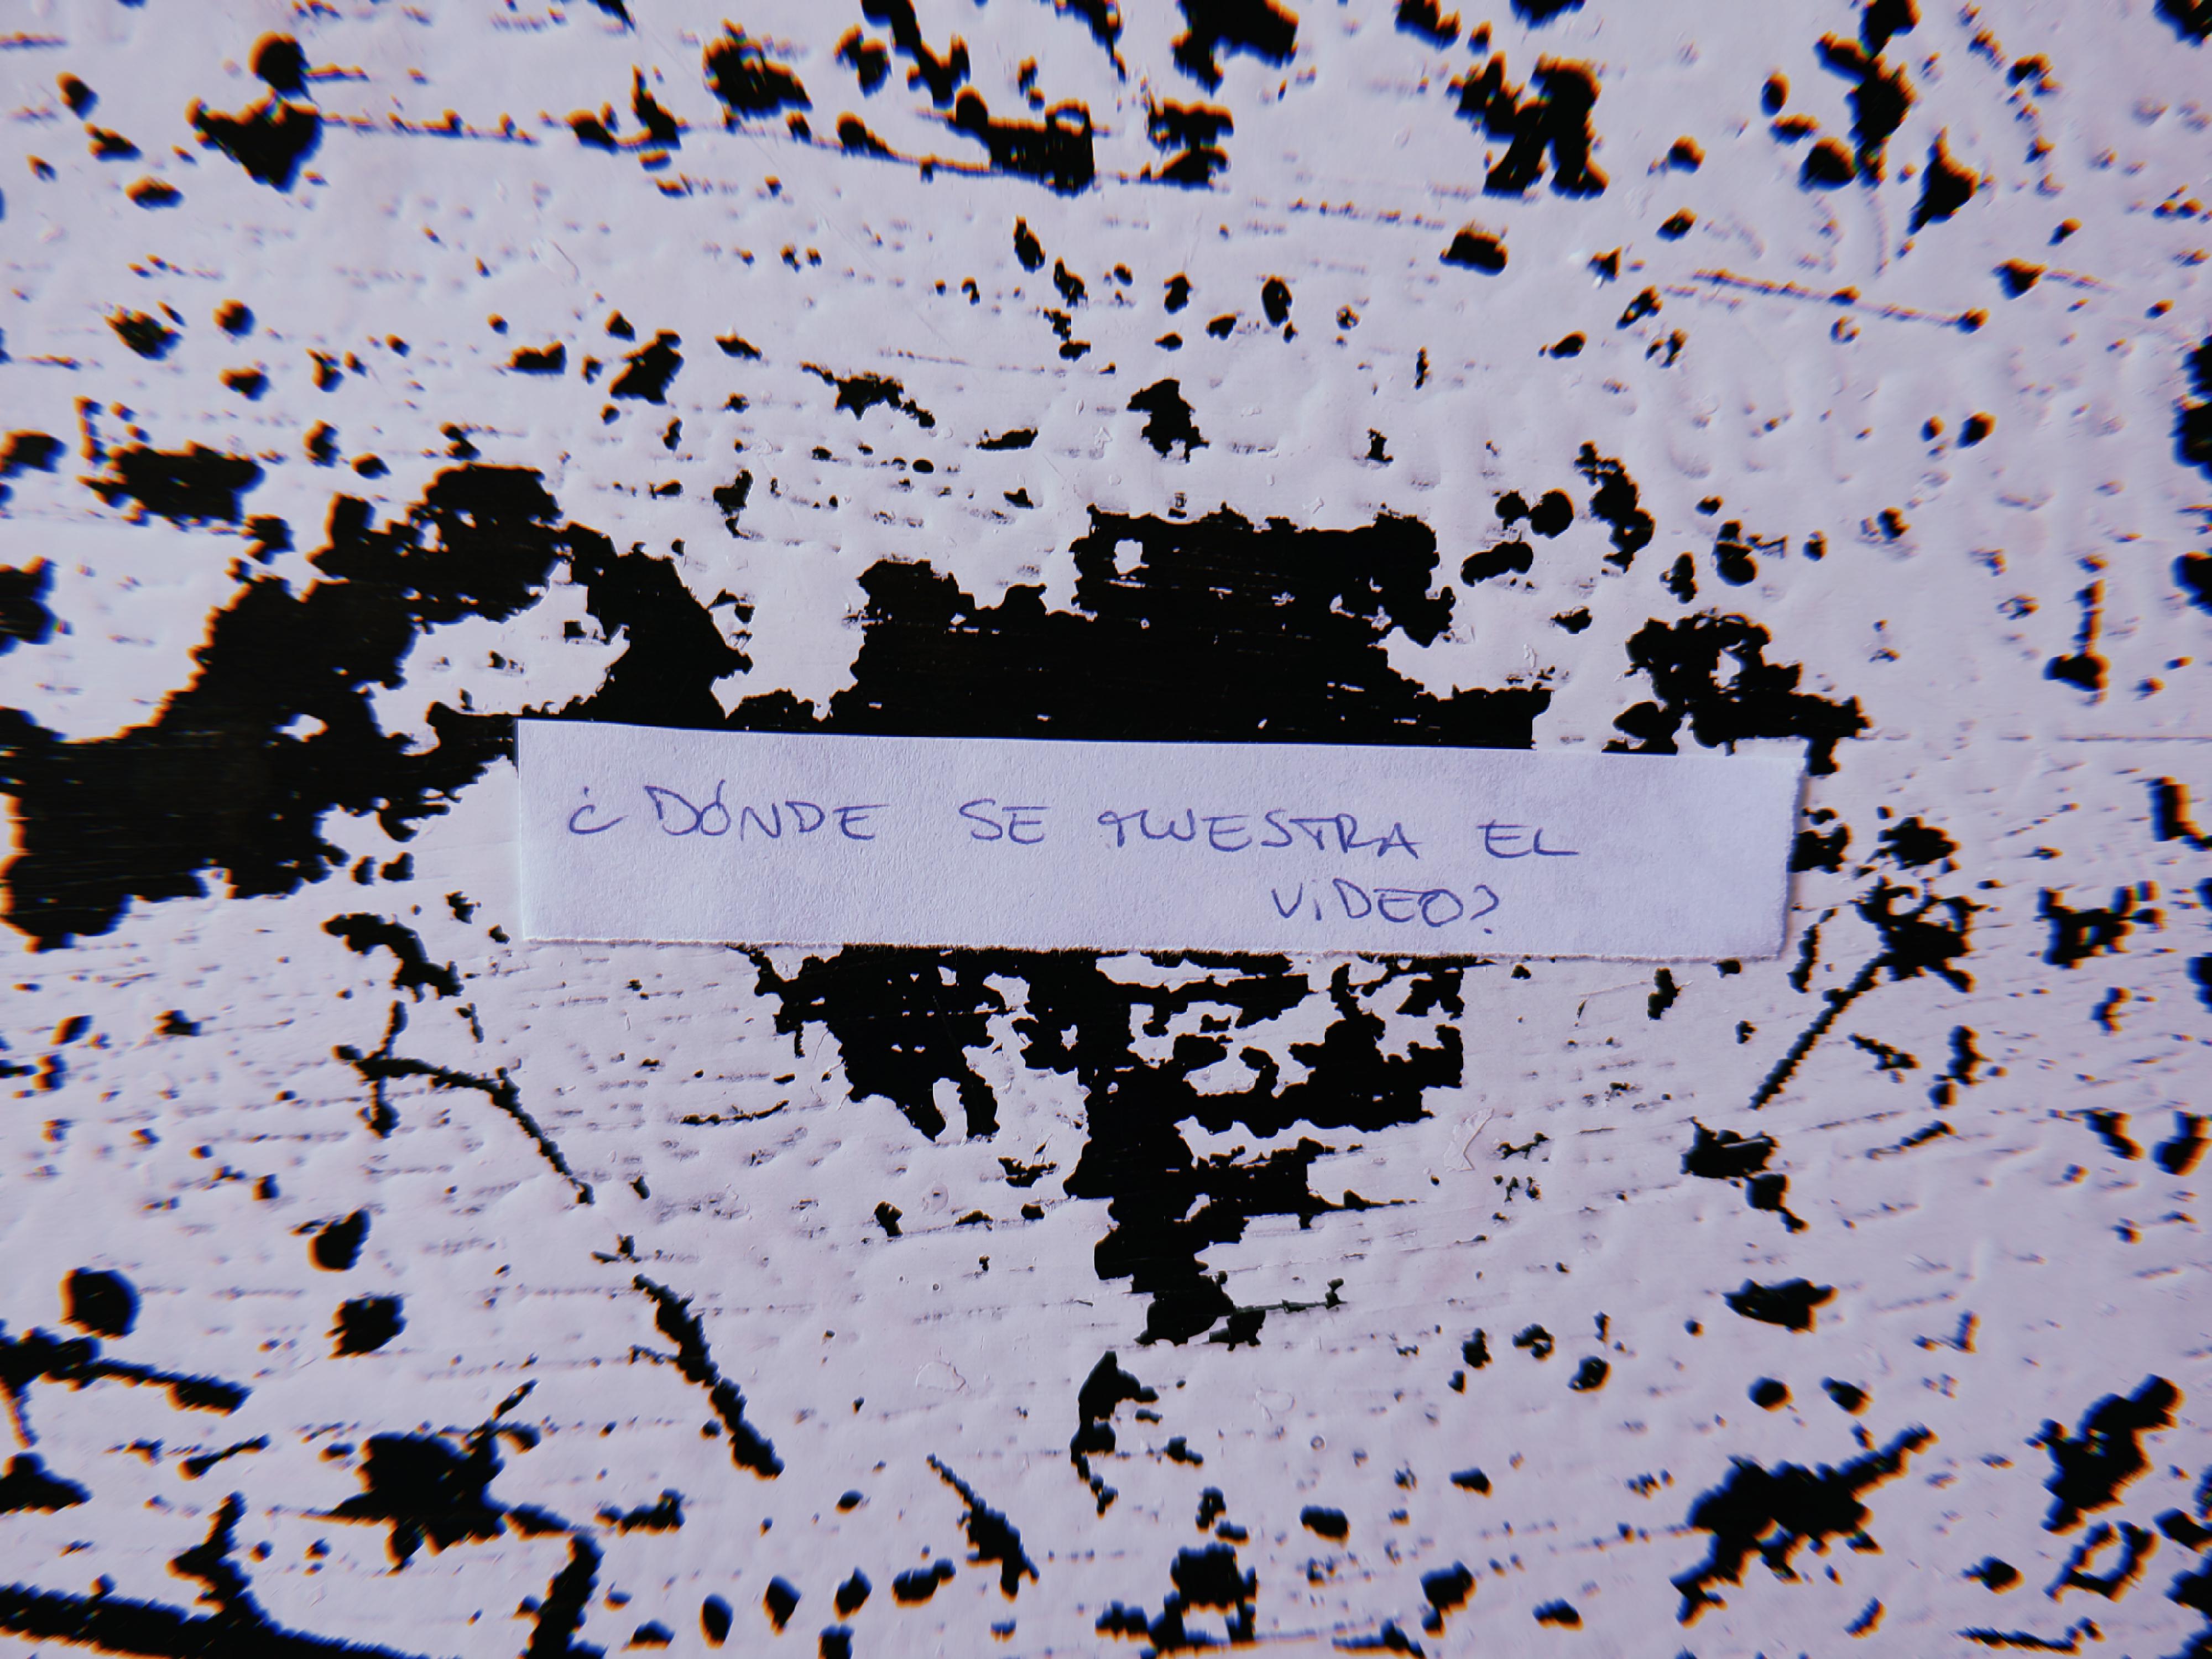 ¿DÓNDE SE MUESTRA EL
VIDEO?